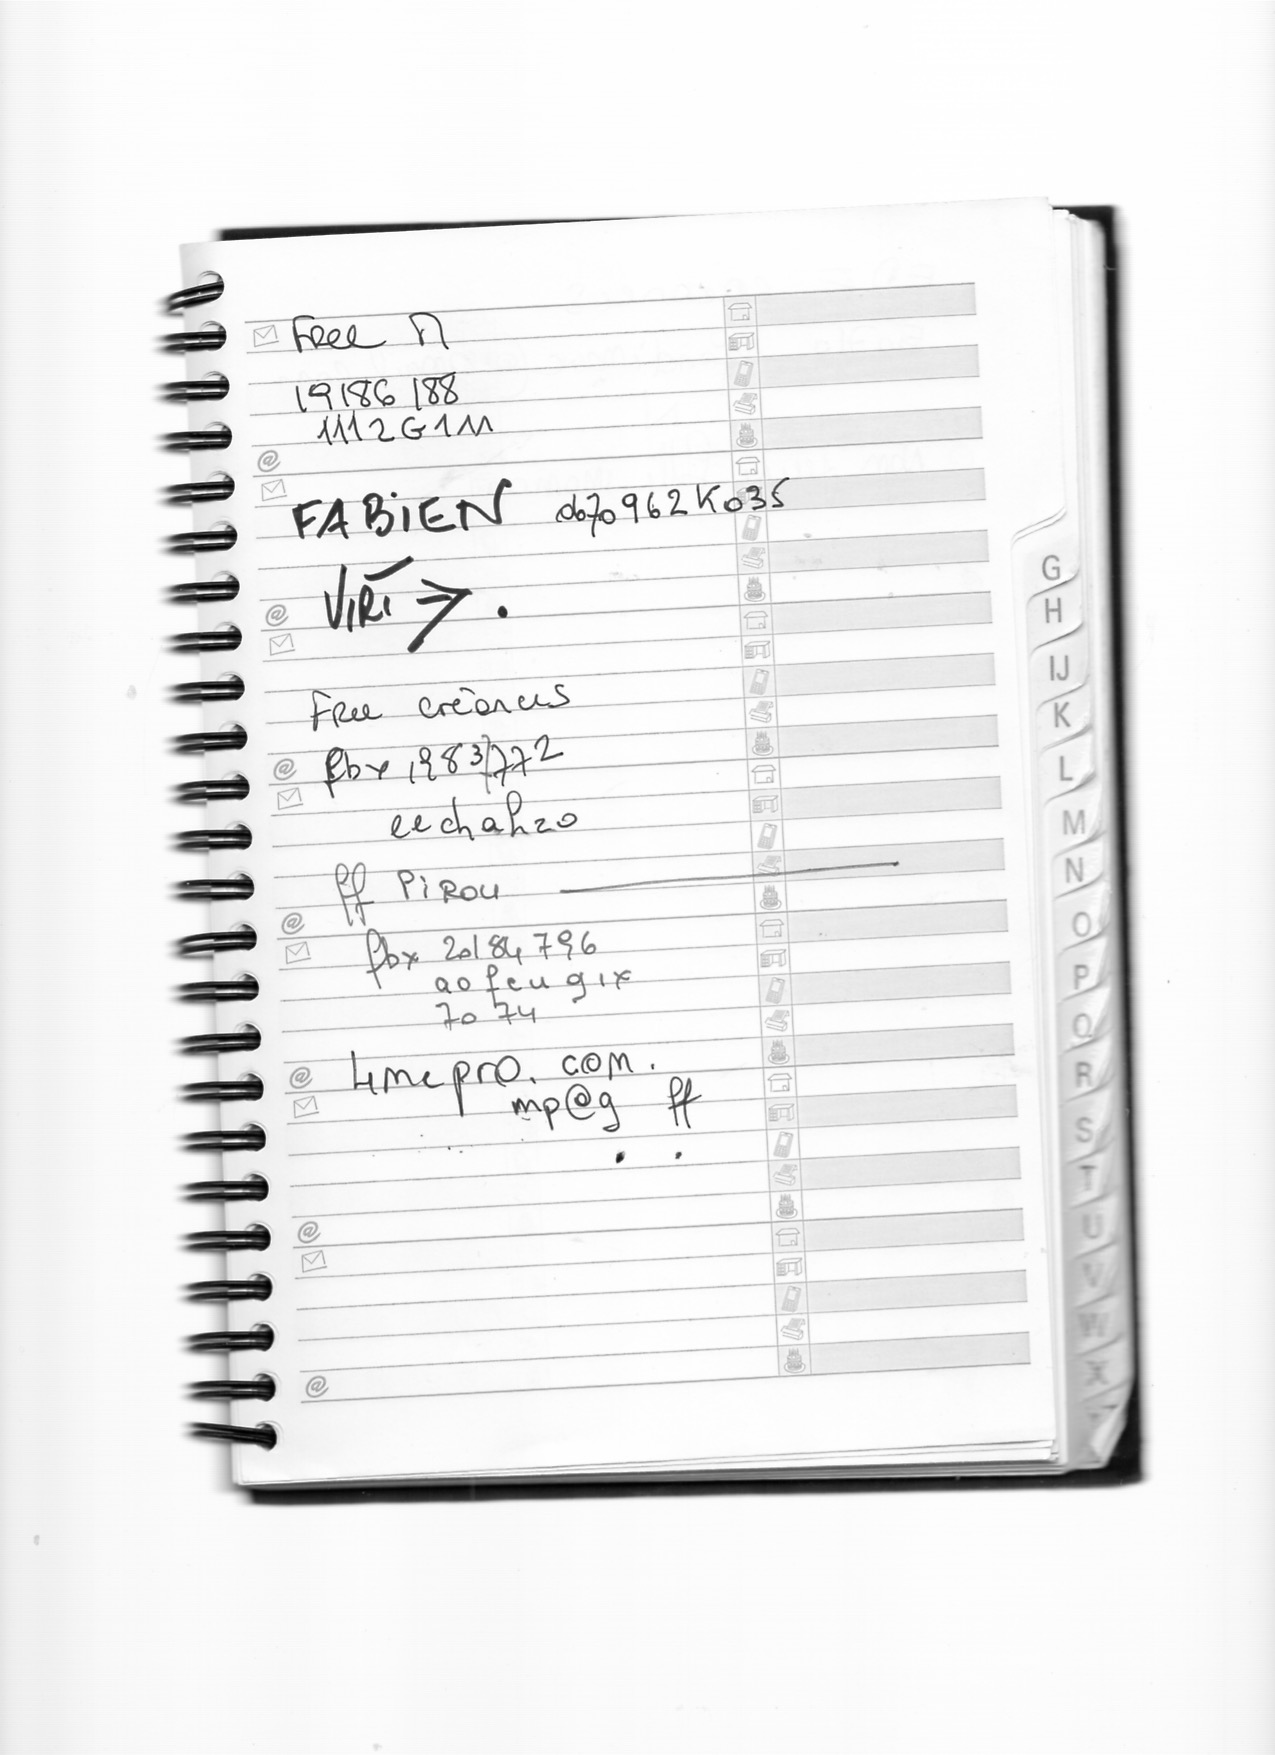 Free
19186188
1112G1M
FABiEN 0670962K035
ViRi → .
Free créances
fbx 1983/772
eechahzo
ff PiROU
fbx 20184796
ao feu gix
70 74
4mepro. com.
mp@g ff
G
H
IJ
K
L
M
N
O
P
Q
R
S
T
U
V
W
X